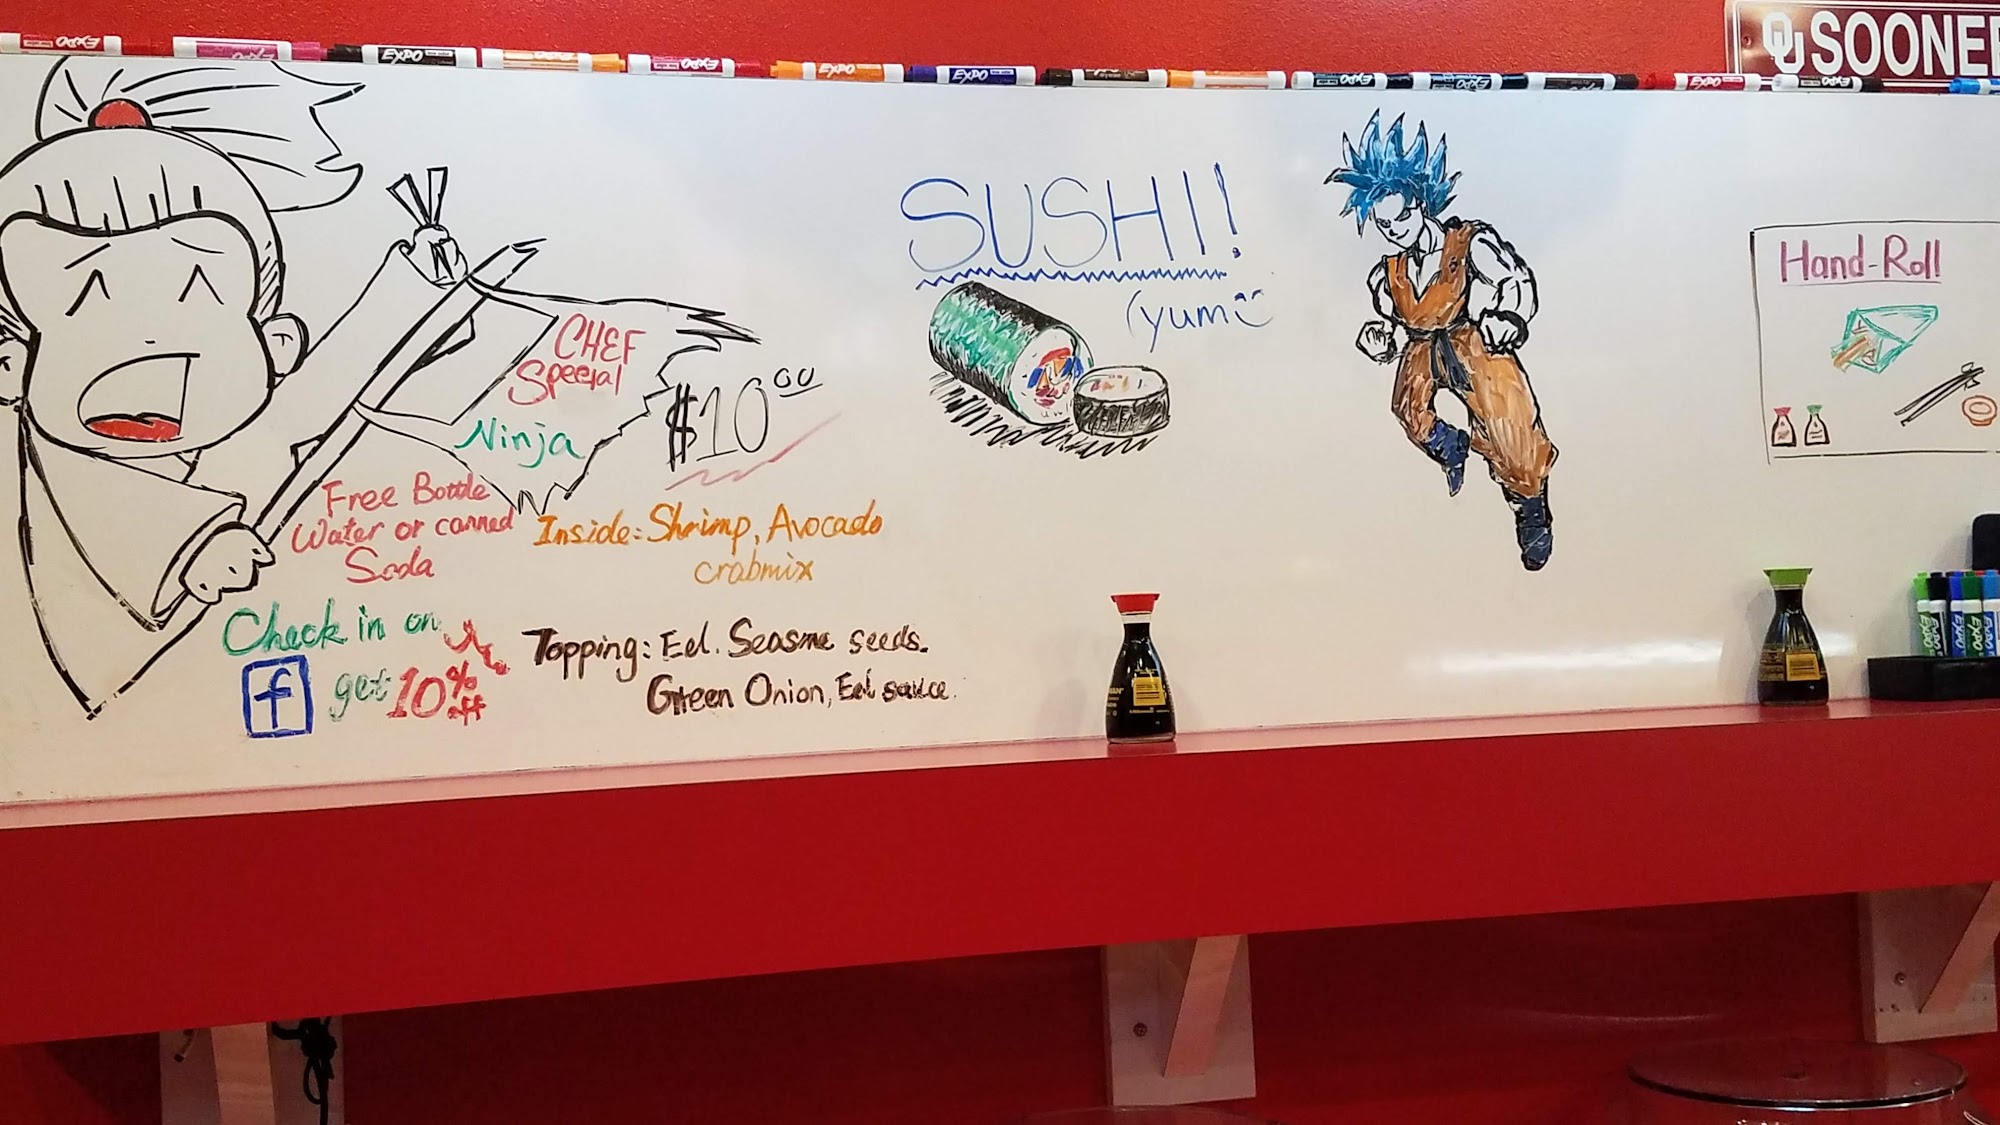 OU SOONER
EXPO
EXPO
EXPO
EXPO
EXPO
EXPO
EXPO
EXPO
EXPO
EXPO
CHEF
Special
Ninja
$10.00
Free Bottle
Water or canned
Soda
Inside: Shrimp, Avocado
crabmix
Check in on
f get 10% off
Topping: Eel. Seasme seeds.
Green Onion, Eel sauce.
SUSHI!
(yum
Hand-Roll
EXPO
EXPO
EXPO
EXPO